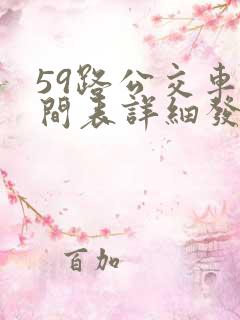 59路公交車
間表詳細發
百加